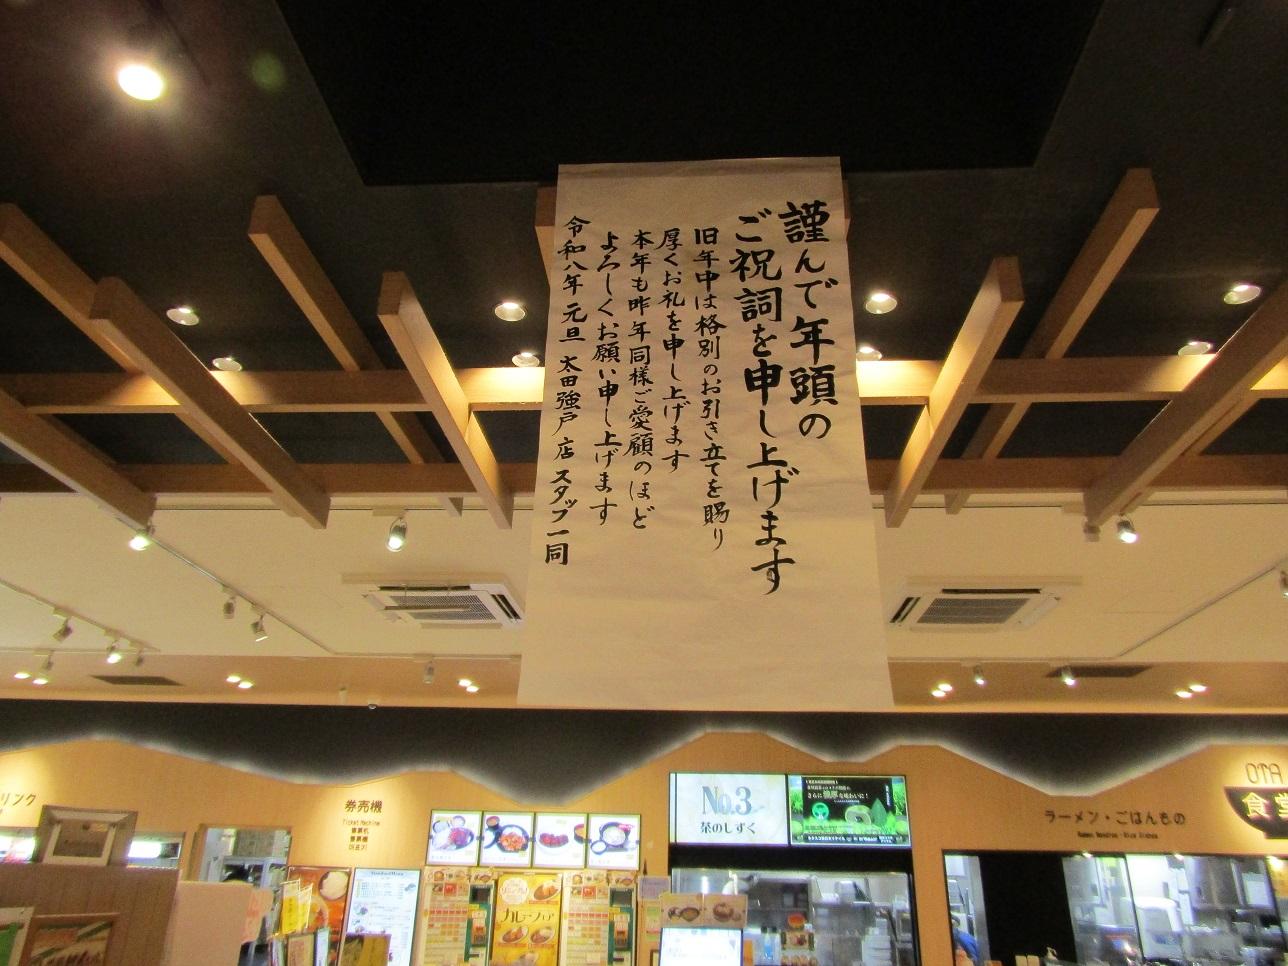 謹んで年頭の
ご祝詞を申し上げます
旧年中は格別のお引き立てを賜り
厚くお礼を申し上げます
本年も昨年同様ご愛顧のほど
よろしくお願い申し上げます
令和八年 元旦 太田強戸店 スタッフ一同
リンク
券売機
Ticket Machine
No.3
茶のしずく
さらに濃厚な味わいに!
カレーフェア
ラーメン・ごはんもの
Ramen Noodles・Rice Dishes
OTA
食堂